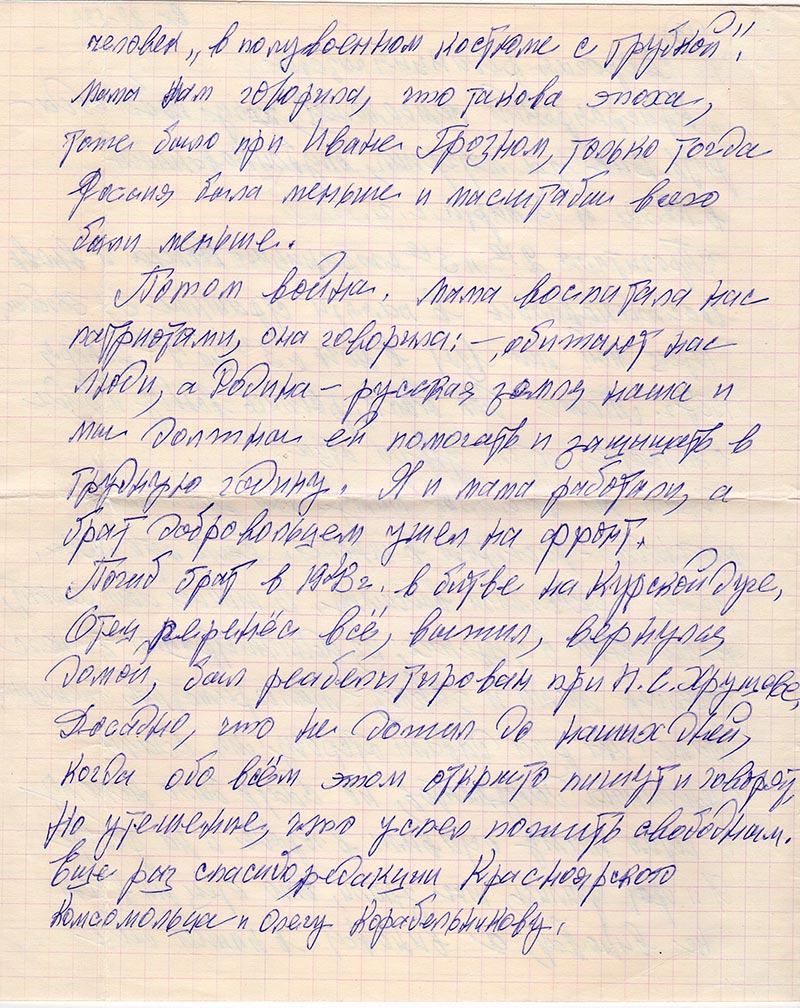 человек „в полувоенном костюме с трубкой".
Мама нам говорила, что такова эпоха,
тоже было при Иване Грозном, только тогда
Россия была меньше и масштабы всего
были меньше.
Потом война. Мама воспитала нас
патриотами, она говорила: – обижают нас
люди, а Родина – русская земля наша и
мы должны ей помогать и защищать в
трудную годину. Я и мама работали, а
брат добровольцем ушел на фронт.
Погиб брат в 1943 г. в битве на Курской дуге,
Отец перенёс всё, выжил, вернулся
домой, был реабелитирован при Н.С. Хрущове,
Досадно, что не дожил до наших дней,
когда обо всём этом открыто пишут и говорят,
Но утешение, что успел пожить свободным.
Еще раз спасибо редакции Красноярского
Комсомольца и Олегу Корабельникову.